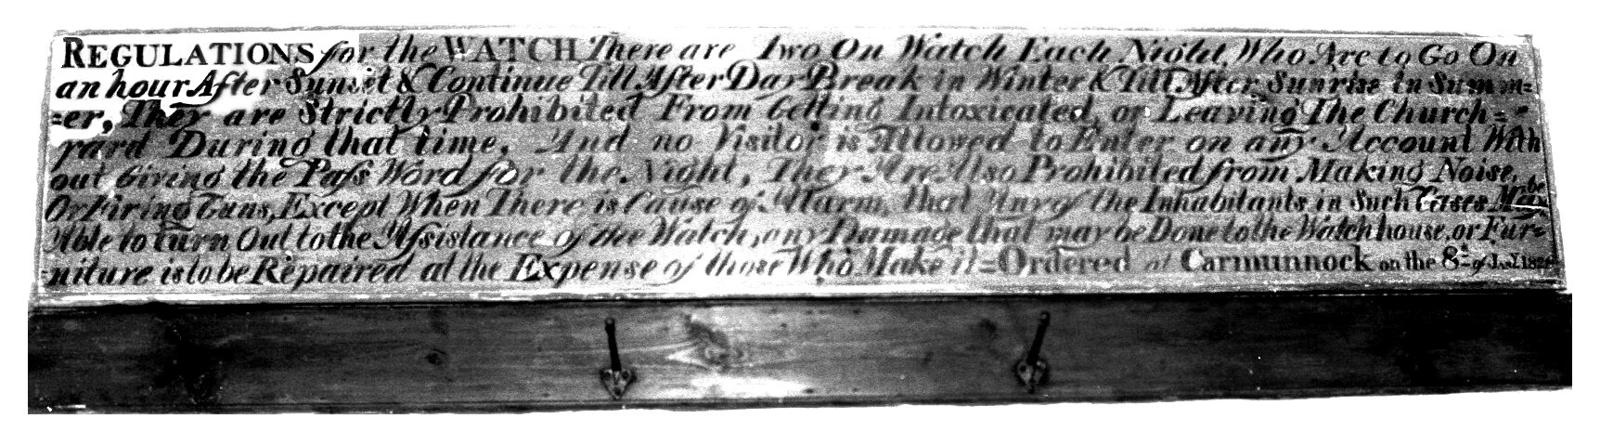 REGULATIONS for the WATCH There are Two On Watch Each Night, Who Are to Go On
an hour After Sunset & Continue Till After Day Break in Winter & Till After Sunrise in Summ=
=er, They are Strictly Prohibited From Getting Intoxicated, or Leaving The Church=
yard During that time. And no Visitor is Allowed to Enter on any Account With
out Giving the Pass Word for the Night, They Are Also Prohibited from Making Noise,
Or Firing Guns, Except When There is Cause of Alarm, that Any of the Inhabitants in Such Cases May be
Able to turn Out to the Assistance of the Watch, any Damage that may be Done to the Watch house, or Fur=
niture is to be Repaired at the Expense of those Who Make it = Ordered at Carmunnock on the 8th of Jany.